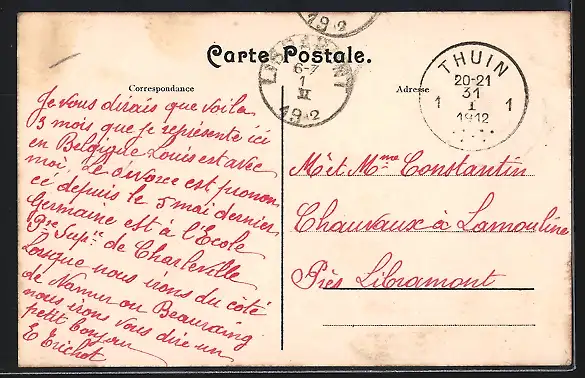 Carte Postale.
Correspondance
Adresse
Je vous dirais que voila
3 mois que je représente ici
en Belgique Louis est avec
moi, le divorce est pronon
cé depuis le 5 mai dernier
Germaine est à l'Ecole
Pre Supre de Charleville
Lorsque nous irons du côté
de Namur ou Beauraing
nous irons vous dire un
petit bonjour
E
Mr et Mme Constantin
Chauvaux à Lamouline
Près Libramont
THUIN
20-21
31
1 I 1
1912
6-7
1
II
1912